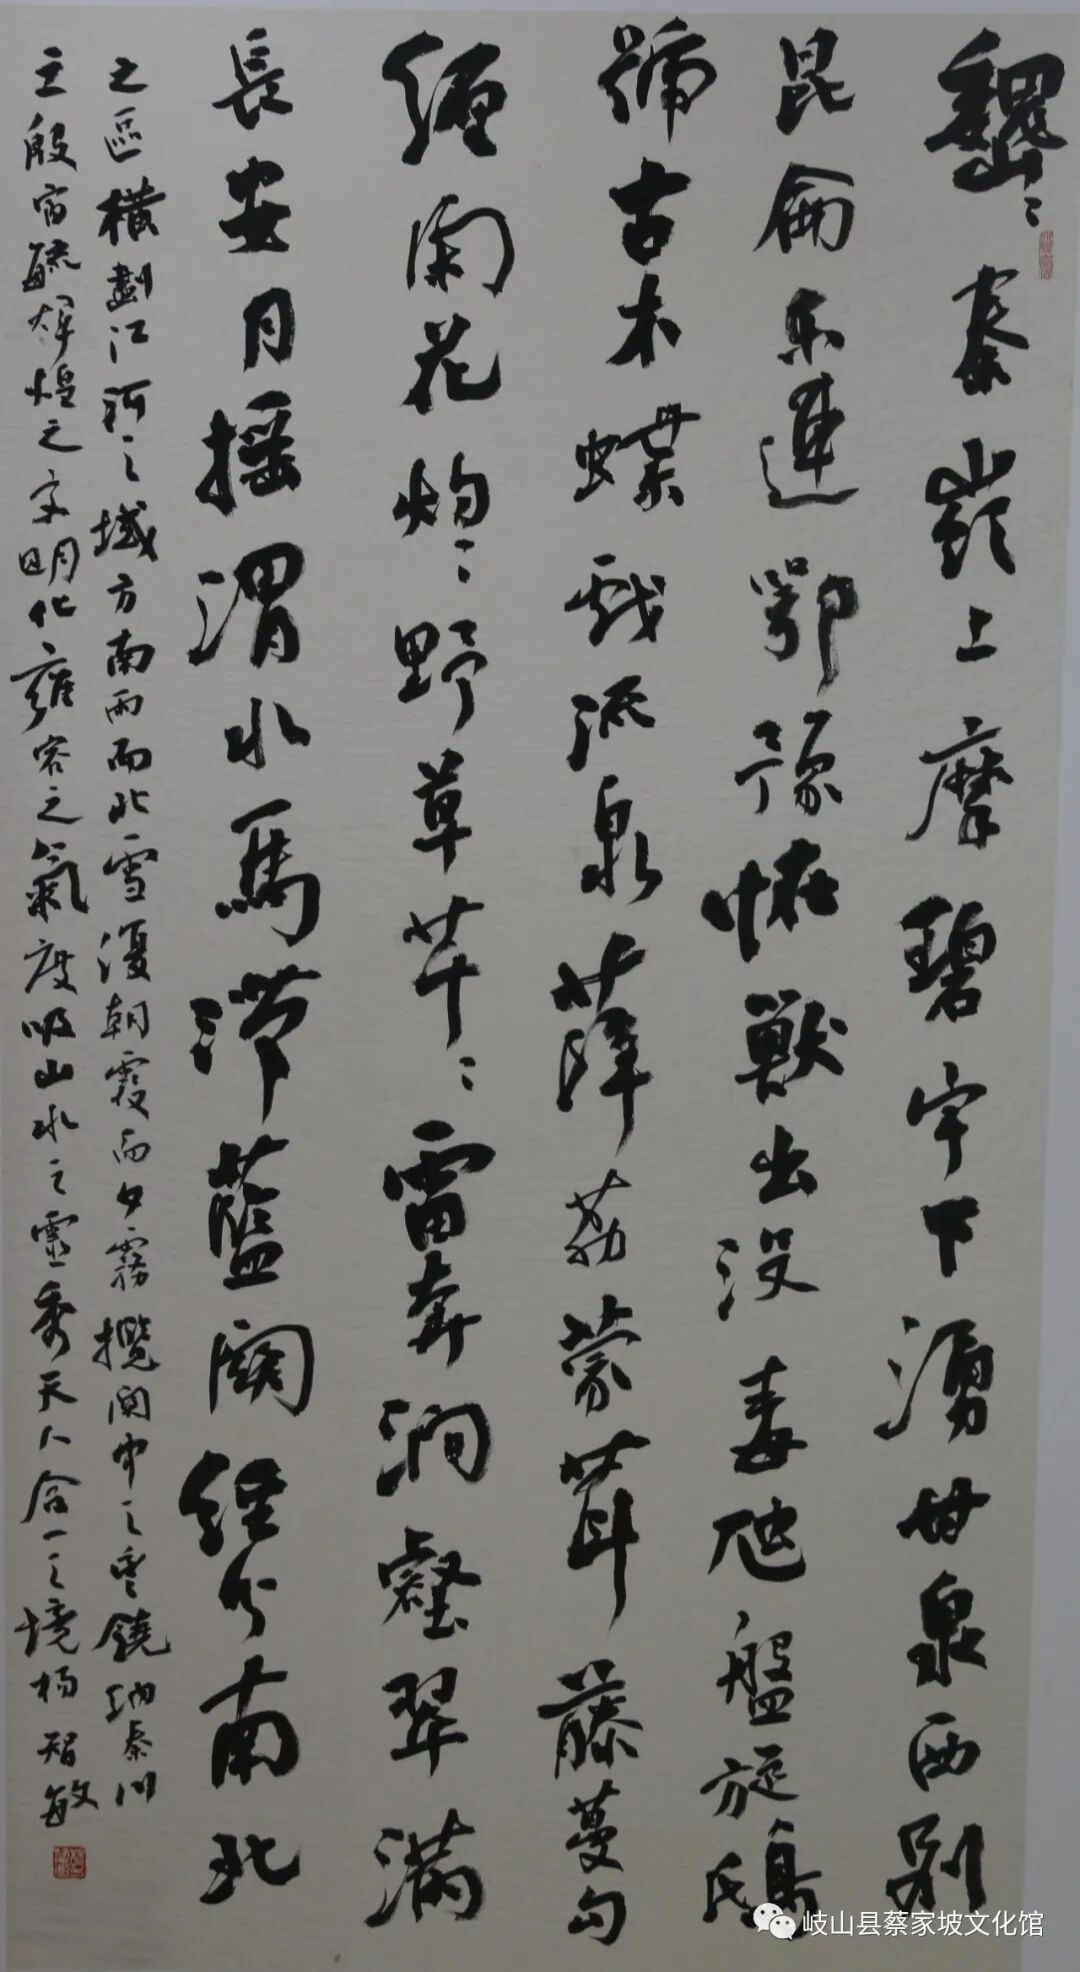 巍巍秦嶺上摩碧宇下湧甘泉西別
昆侖東連鄂豫怪獸出没毒虺盤旋鴟
號古木蝶戲流泉薜荔蒙茸藤蔓勾
纏閑花灼灼野草芊芊雷奔澗壑翠满
長安月摇渭水馬滯藍關經分南北
之區横劃江河之域方南雨而北雪復朝霞而夕霧攬關中之豐饒納秦川
之殷富毓辉煌之文明化雍容之氣度吸山水之靈秀天人合一之境杨智敏
岐山县蔡家坡文化馆